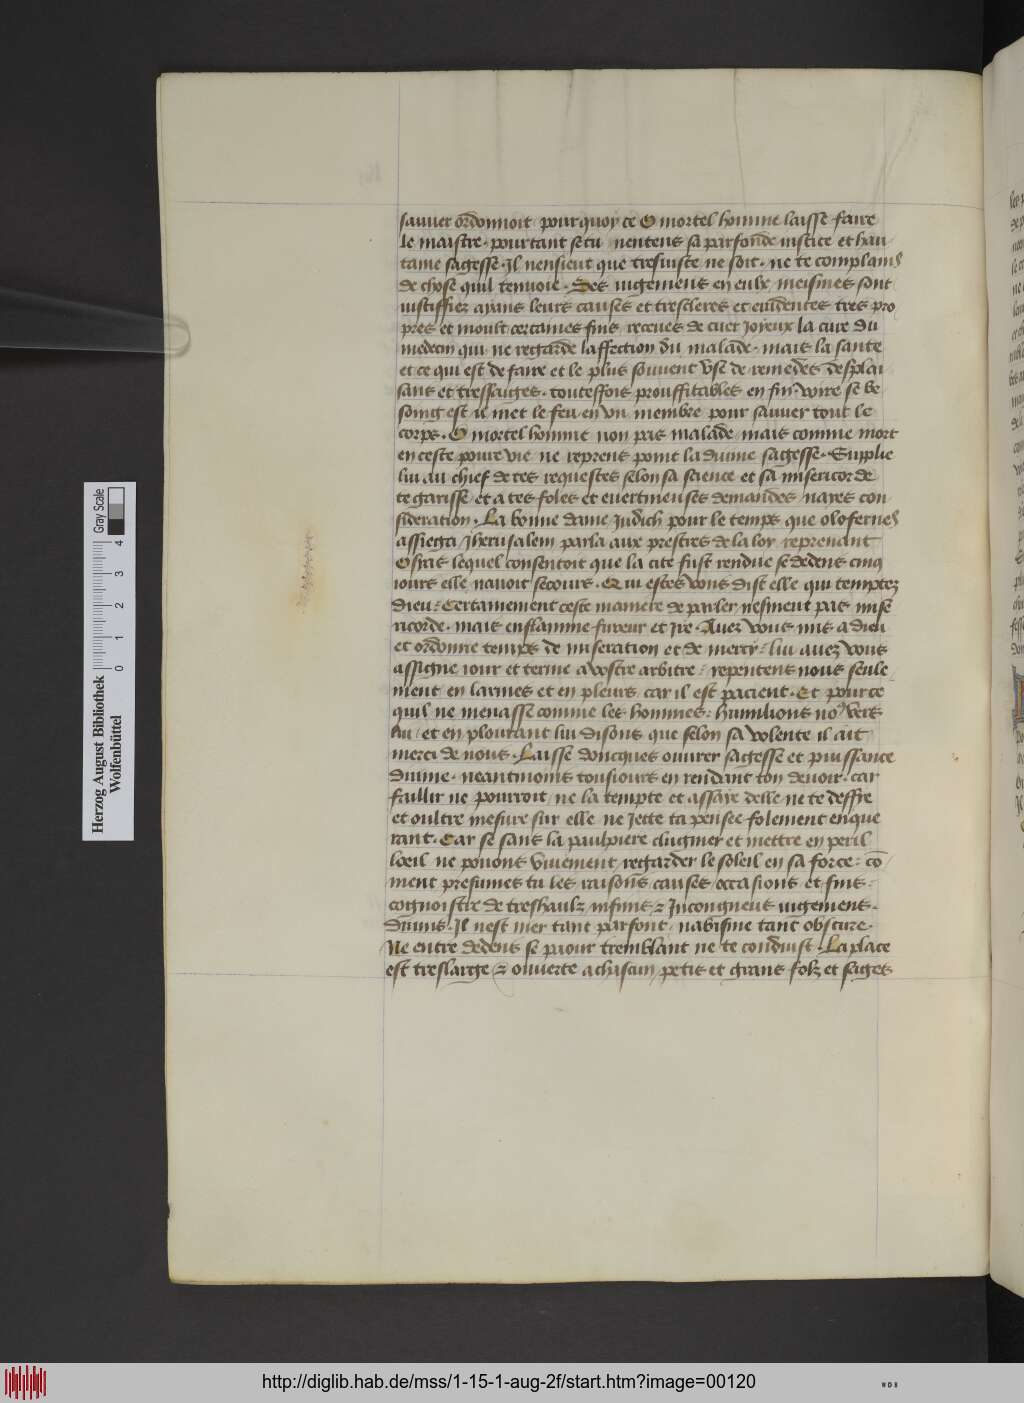 sauuer ordonnoit pourquoy ce O mortel homme laisse faire
le maistre · pourtant se tu nentens sa parfonde iustice et hau
taine sagesse · Il nensieut que tresiuste ne soit · ne te complains
de chose quil tenuoie · Ses iugemens en eulx meismes sont
iustiffiez ayans leurs causes et trescleres et euidentes tres pro
pres et moult certaines fins receues de cuer Joyeux la cure du
medecin qui ne regarde laffection du malade · mais la sante
et ce qui est de faire et le plus souuent vse de remedes desplai
sans et tressauges · touteffois prouffitables en fin · voire se be
soing est il met le feu en vn membre pour sauuer tout le
corps · O mortel homme non pas malade mais comme mort
en ceste poure vie ne reprens point la diuine sagesse · Supplie
lui au chief de tes requestes selon sa science et sa misericorde
te garisse et a tes foles et euertineuses demandes nayes con
sideration · La bonne dame Judich pour le temps que olofernes
assiega Jherusalem parla aux prestres de la loy reprenant
Osyas lequel consentoit que la cite fust rendue se dedens cinq
iours elle nauoit secours · Qui estes vous dist elle qui temptez
dieu · Certainement ceste maniere de parler nesmeut pas mise
ricorde · mais enflamme fureur et Ire · Auez vous mis a dieu
et ordonne temps de miseration et de mercy · lui auez vous
assigne iour et terme a vostre arbitre · repentens nous seule
ment en larmes et en pleurs car il est pacient · Et pour ce
quil ne menasse comme les hommes · humilions nos vers
lui · et en plourant lui disons que selon sa volente il ait
merci de nous · Laisse doncques ouurer sagesse et puissance
diuine · neantmoins tousiours en rendant ton deuoir · car
faillir ne pourroit ne la tempte et assaye delle ne te deffye
et oultre mesure sur elle ne Jette ta pensee folement enque
rant · Car se sans la paulpiere clugnier et mettre en peril
loeil ne pouons viuement regarder le soleil en sa force · co
ment presumes tu les raisons causes occasions et fins
cognoistre de treshaulz infinis et Incongneus iugemens
diuins · Il nest mer tant parfont nabisme tant obscure ·
Ne entre dedens se paour tremblant ne te conduist · La place
est treslarge et ouuerte a chascun petis et grans folz et sages
Herzog August Bibliothek
Wolfenbüttel
0 1 2 3 4
Gray Scale
http://diglib.hab.de/mss/1-15-1-aug-2f/start.htm?image=00120